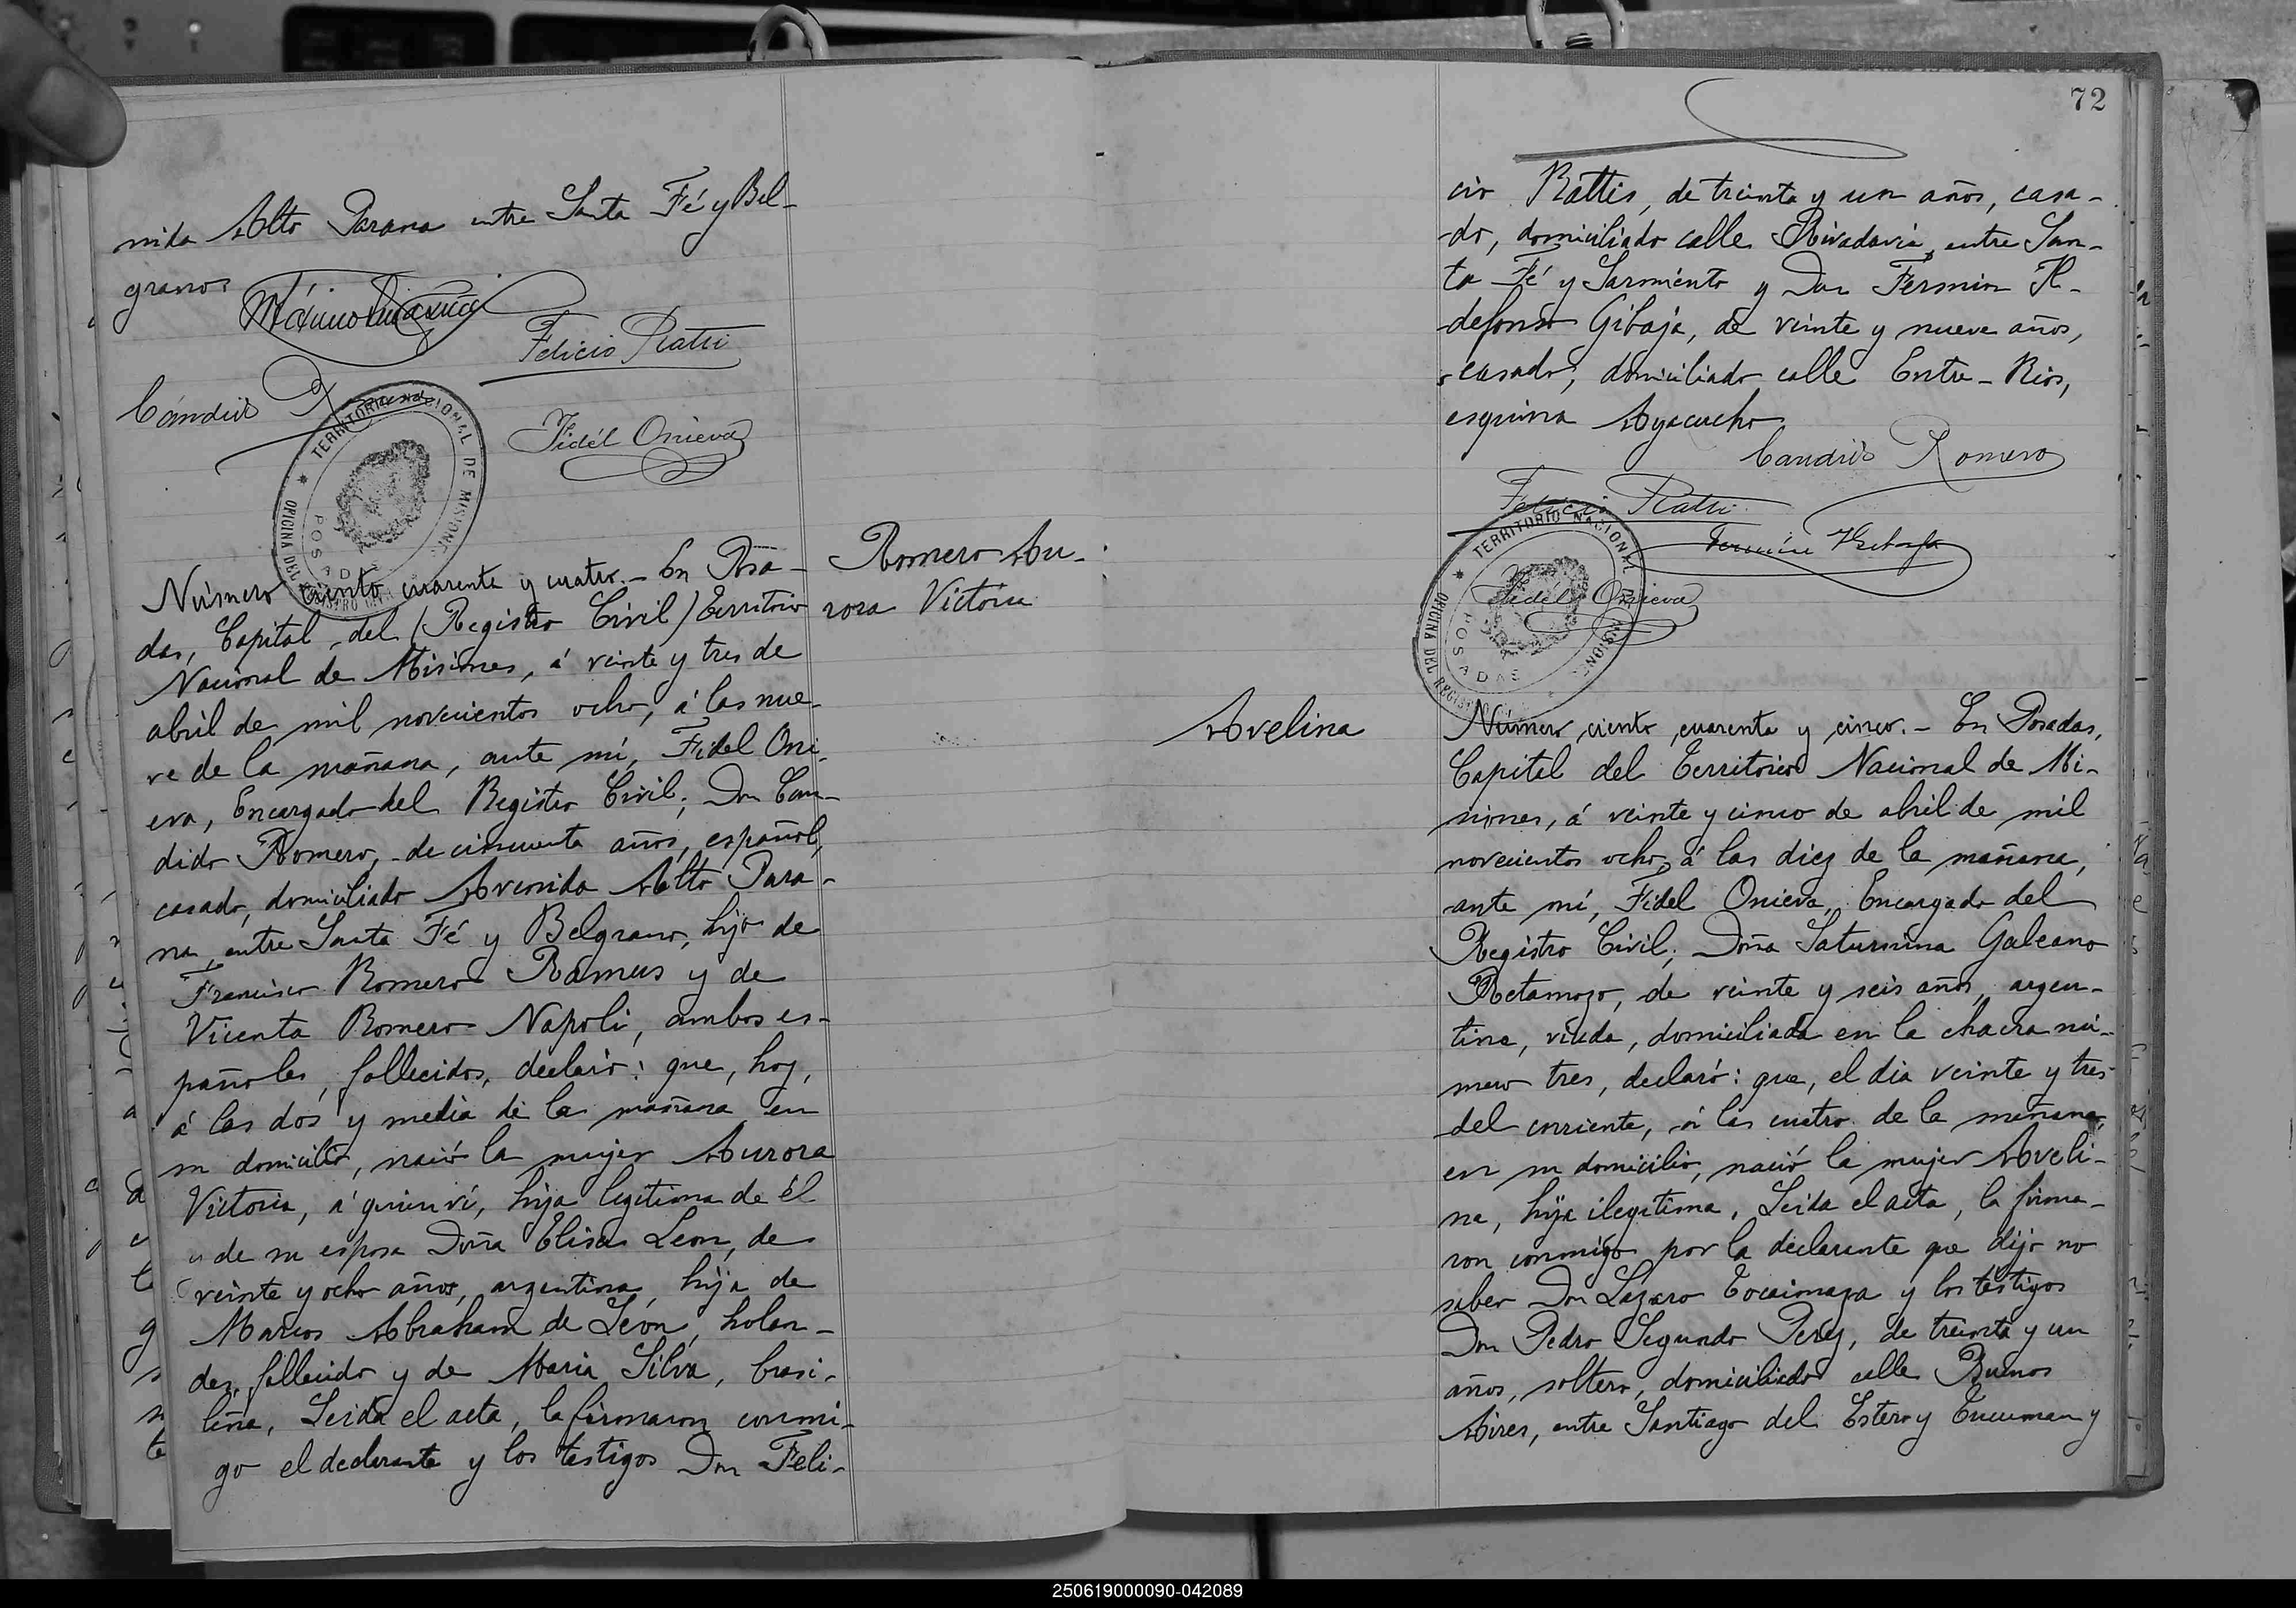 nida Alto Parana entre Santa Fé y Bel-
grano.
Felicio Ratti
Cándido
Fidél Onieva
TERRITORIO NACIONAL DE MISIONES
OFICINA DEL REGISTRO CIVIL
POSADAS
Romero Au-
rora Victoria
Número ciento cuarenta y cuatro.- En Posa-
das, Capital del (Registro Civil) Territorio
Nacional de Misiones, á veinte y tres de
abril de mil novecientos ocho, á las nue-
ve de la mañana, ante mí, Fidel Oni-
eva, Encargado del Registro Civil; Don Can-
dido Romero, de cincuenta años, español,
casado, domiciliado Avenida Alto Para-
na, entre Santa Fé y Belgrano, hijo de
Francisco Romero Ramus y de
Vicenta Romero Napoli, ambos es-
pañoles, fallecidos, declaró: que, hoy,
á las dos y media de la mañana en
su domicilio, nació la mujer Aurora
Victoria, á quien ví, hija legitima de él
y de su esposa Doña Elisa Leon, de
veinte y ocho años, argentina, hija de
Marcos Abraham de León, holan-
des, fallecido y de Maria Silva, brasi-
leña. Leida el acta, la firmaron conmi-
go el declarante y los testigos Don Feli-
72
cio Rattis, de treinta y un años, casa-
do, domiciliado calle Rivadavia, entre San-
ta Fé y Sarmiento y Don Fermin Il-
defonso Gibaja, de veinte y nueve años,
casado, domiciliado calle Entre-Rios,
esquina Ayacucho.
Candido Romero
Felicio Ratti
Fermin Gibaja
Fidél Onieva
TERRITORIO NACIONAL DE MISIONES
OFICINA DEL REGISTRO
POSADAS
Avelina
Número ciento cuarenta y cinco.- En Posadas,
Capital del Territorio Nacional de Mi-
siones, á veinte y cinco de abril de mil
novecientos ocho, á las diez de la mañana,
ante mí, Fidel Onieva, Encargado del
Registro Civil; Doña Saturnina Galeano
Retamozo, de veinte y seis años, argen-
tina, viuda, domiciliada en la chacra nú-
mero tres, declaró: que, el dia veinte y tres
del corriente, á las cuatro de la mañana,
en su domicilio, nació la mujer Aveli-
na, hija ilegitima. Leida el acta, la firma-
ron conmigo por la declarante que dijo no
saber Don Lázaro Tocaimaza y los testigos
Don Pedro Segundo Perez, de treinta y un
años, soltero, domiciliado calle Buenos
Aires, entre Santiago del Estero y Tucuman y
250619000090-042089